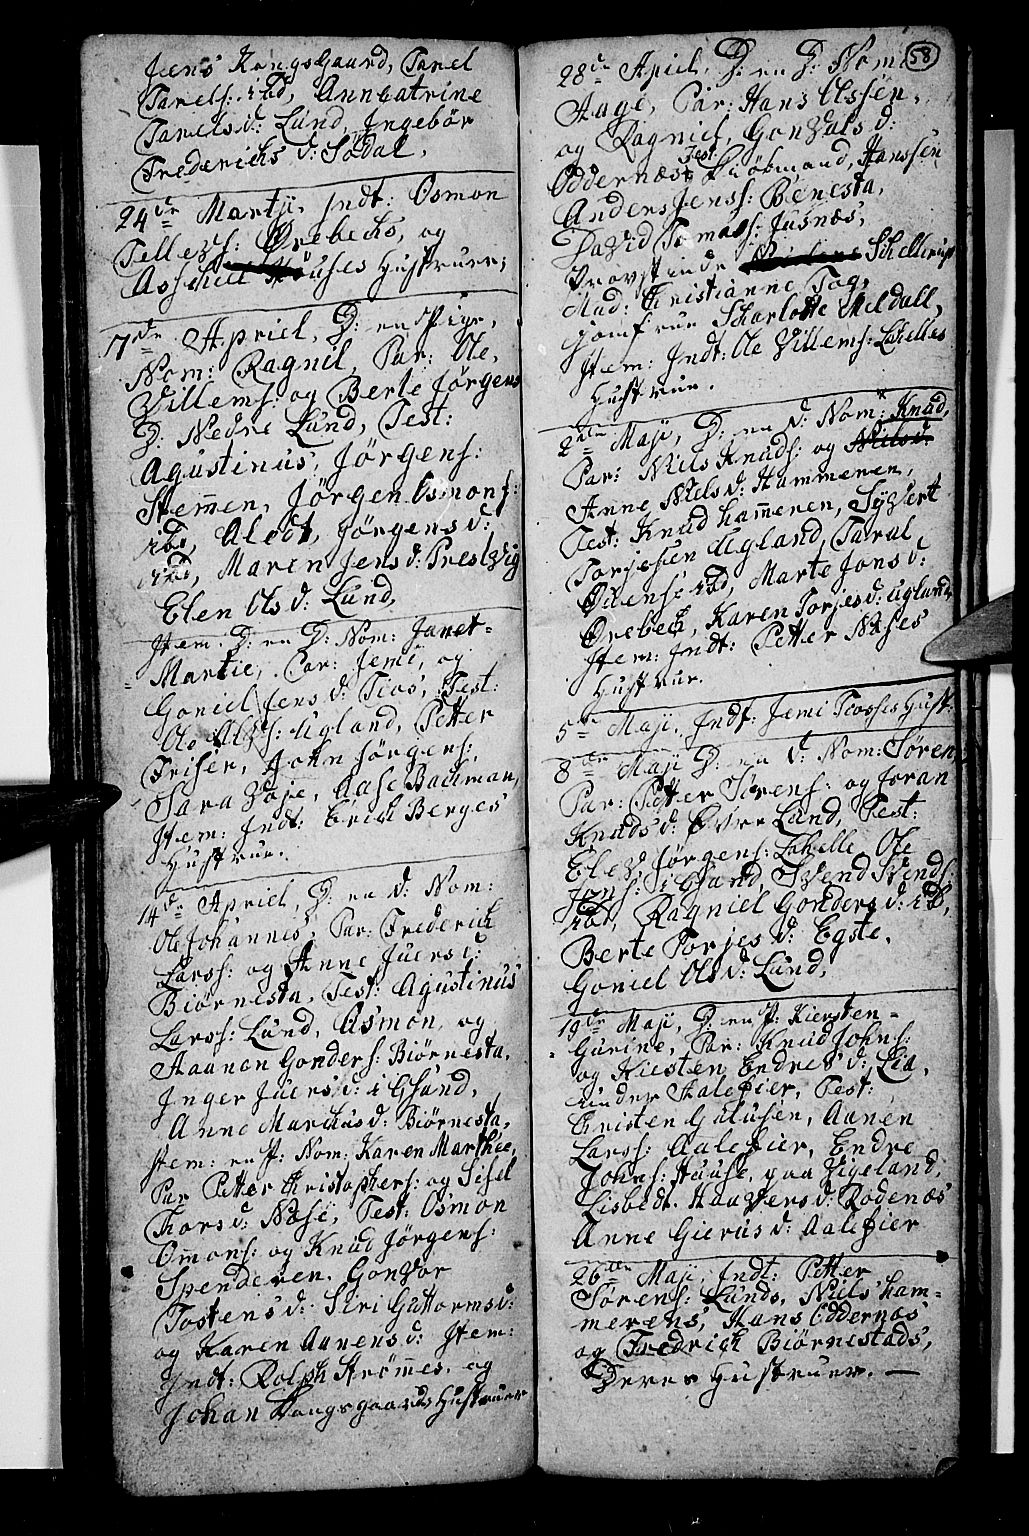 Jens Kongsgaard, Tarel
Tarels: ibd, Anncatrine
Tarels d: Lund, Ingebór
Frederichs d: Södal,
24de Martji, Jndt: Osmon
Tellefs: Drebechs, og
Asschill Huuses Hustruer;
17de Apriel, D: en Pige,
Nom: Ragnil, Par: Ole,
Villems: og Berte Jörgens
D: Nedre Lund, Test:
Agustinus, Jörgens:
Stemen, Jörgen Osmons:
ibd, Aledt, Jörgens d:
ibd, Maren Jens d: Prestvig
Elen Ols d: Lund,
Jtem. D: en D: Nom: Janet-
Martie, Par: Jemi, og
Goniel Jens d: Tios, Test:
Ole Ugland, Petter
Friser, John Jörgens:
Sara Aase Bachman,
Jtem: Jndt: Erich Berges
Hustrue.
14de Apriel, D: en d: Nom:
Ole Johannes, Par: Frederich
Larss: og Anne Juers d:
Biörnesta, Test: Agustinus
Larss: Lund, Osmon, og
Aaanen Gonders: Biörnesta,
Jnger Juers d: i Gsund,
Anne Marchus d: Biörnesta,
Jtem: en P: Nom: Karen Marthie,
Par Petter Christophers: og Sisel
Thors d: Næse, Test: Osmon
Omons: og Knud Jörgens:
Spenderen. Gonvor
Tostens d: Siri Guttorms d:
og Karen Aanens d: Jtem:
Jndt: Rolph Strömmes. og
Johan Kongsgaards Hustruer
58
28de Apiel, D: en D: Nom:
Aage, Par: Hans Ossen,
og Ragniel, Gonvals d:
Oddernæs Test Kiöbmand, Hanssen
Anders Jenss: Benesta,
David Tomass: Jusnæs,
Provstinde Schelderup
Mad: Christianne Tog,
Jomfrue Scharlotte Meldall,
Jtem: Jndt: Ole Villems:
Hustrue.
2den Maji, D: en d: Nom: Knud,
Par: Niels Knuds: og Niels d:
Anne Niels d: Hammeren,
Test: Knud hameren, Syvert
Torjesen Ugland, Taral
Ouense ibd, Marte Jons d:
Drebech, Karen Torjes d: ugland
Jtem: Jndt: Petter Næses
Hustrue.
5te Maji, Jndt: Jemi Tiosses Hust:
8de Maji D: en d: Nom: Sören,
Par: Petter Sörens: og Joran
Knuds d: Lund, Test:
Elev, Jörgens: Lahelle, Ole
Jens: i Gsund Svend Svends:
ibd, Ragniel Gonders d: ibd,
Berte Torjes d: Egste,
Goniel Ols d: Lund,
19de Maji, D: en P: Kiersten-
Gurine, Par: Knud Johns:
og Kiesten Endres d: Lia,
under Aalefier, Test:
Cristen Aanen
Larss: Aalefier, Endre
Johns: Huuse, paa Vigeland,
Lisbedt. Haavers d: Rödenæs
Anne Gierus d: Aalefier
26de Maji, Jndt: Petter
Sörens: Lunds, Niels ham-
merens, Hans Oddernæs
og Fredrich Biörnestads,
Deres Hustruer.